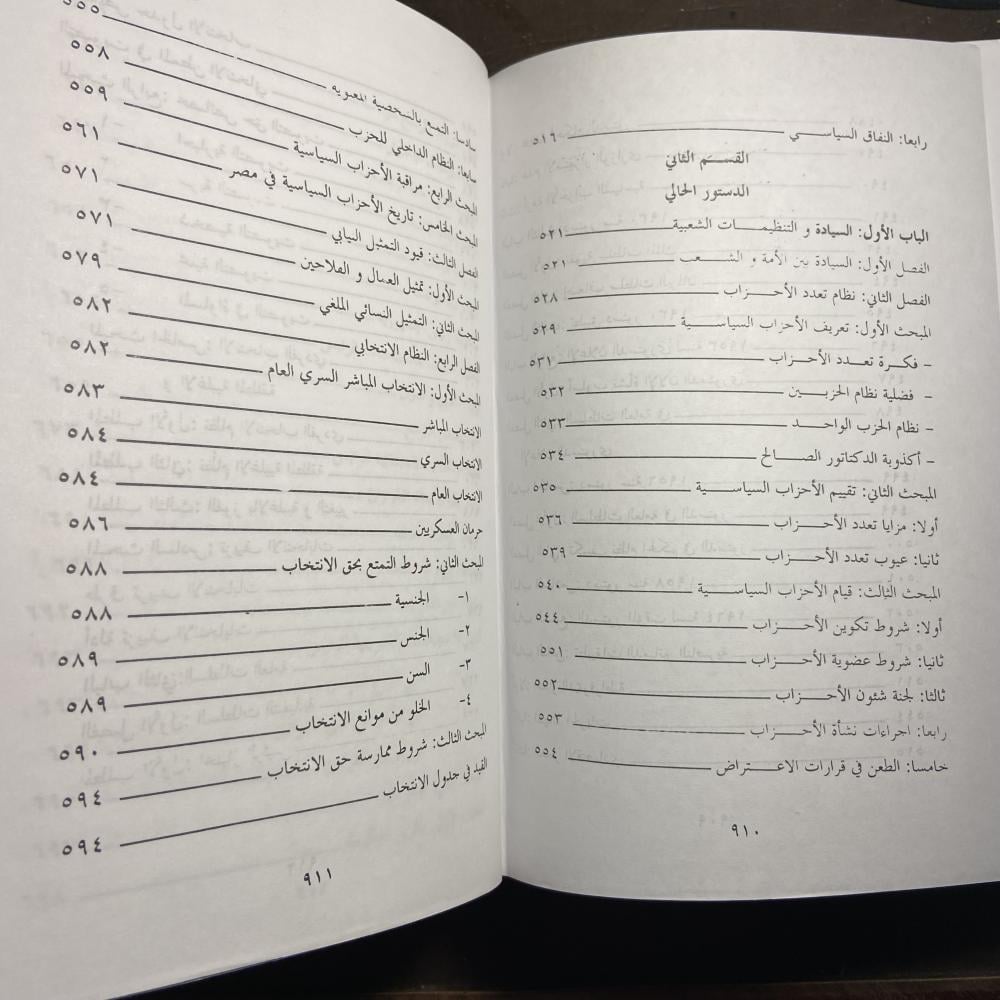 رابعا: النفاق السياسي ٥١٦
القسم الثاني
الدستور الحالي
الباب الأول: السيادة و التنظيمات الشعبية ٥٢١
الفصل الأول: السيادة بين الأمة و الشعب ٥٢١
الفصل الثاني: نظام تعدد الأحزاب ٥٢٨
المبحث الأول: تعريف الأحزاب السياسية ٥٢٩
- فكرة تعدد الأحزاب ٥٣١
- فضلية نظام الحزبين ٥٣٢
- نظام الحزب الواحد ٥٣٣
- أكذوبة الدكتاتور الصالح ٥٣٤
المبحث الثاني: تقييم الأحزاب السياسية ٥٣٥
أولا: مزايا تعدد الأحزاب ٥٣٦
ثانيا: عيوب تعدد الأحزاب ٥٣٩
المبحث الثالث: قيام الأحزاب السياسية ٥٤٠
أولا: شروط تكوين الأحزاب ٥٤٤
ثانيا: شروط عضوية الأحزاب ٥٥١
ثالثا: لجنة شئون الأحزاب ٥٥٢
رابعا: اجراءات نشأة الأحزاب ٥٥٣
خامسا: الطعن في قرارات الاعتراض ٥٥٤
٩١٠
سادسا: التمتع بالشخصية المعنوية ٥٥٥
سابعا: النظام الداخلي للحزب ٥٥٨
المبحث الرابع: مراقبة الأحزاب السياسية ٥٥٩
المبحث الخامس: تاريخ الأحزاب السياسية في مصر ٥٦١
الفصل الثالث: قيود التمثيل النيابي ٥٧١
المبحث الأول: تمثيل العمال و الفلاحين ٥٧١
المبحث الثاني: التمثيل النسائي الملغي ٥٧٩
الفصل الرابع: النظام الانتخابي ٥٨٢
المبحث الأول: الانتخاب المباشر السري العام ٥٨٢
الانتخاب المباشر ٥٨٣
الانتخاب السري ٥٨٤
الانتخاب العام ٥٨٤
حرمان العسكريين ٥٨٦
المبحث الثاني: شروط التمتع بحق الانتخاب ٥٨٨
١- الجنسية ٥٨٨
٢- الجنس ٥٨٩
٣- السن ٥٨٩
٤- الخلو من موانع الانتخاب ٥٩٠
المبحث الثالث: شروط ممارسة حق الانتخاب ٥٩٤
القيد في جدول الانتخاب ٥٩٤
٩١١